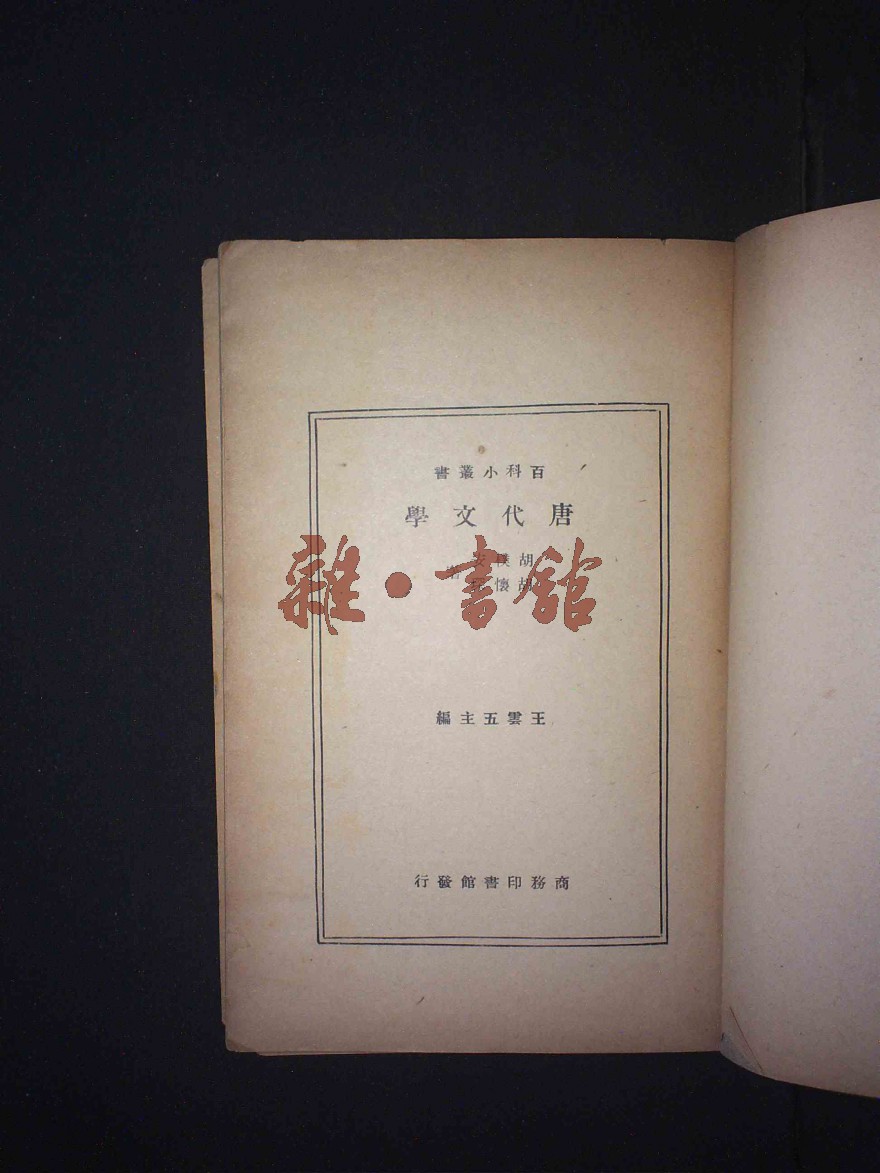 百科小叢書
唐代文學
胡樸安
胡懷琛
著
王雲五主編
商務印書館發行
雜·書館